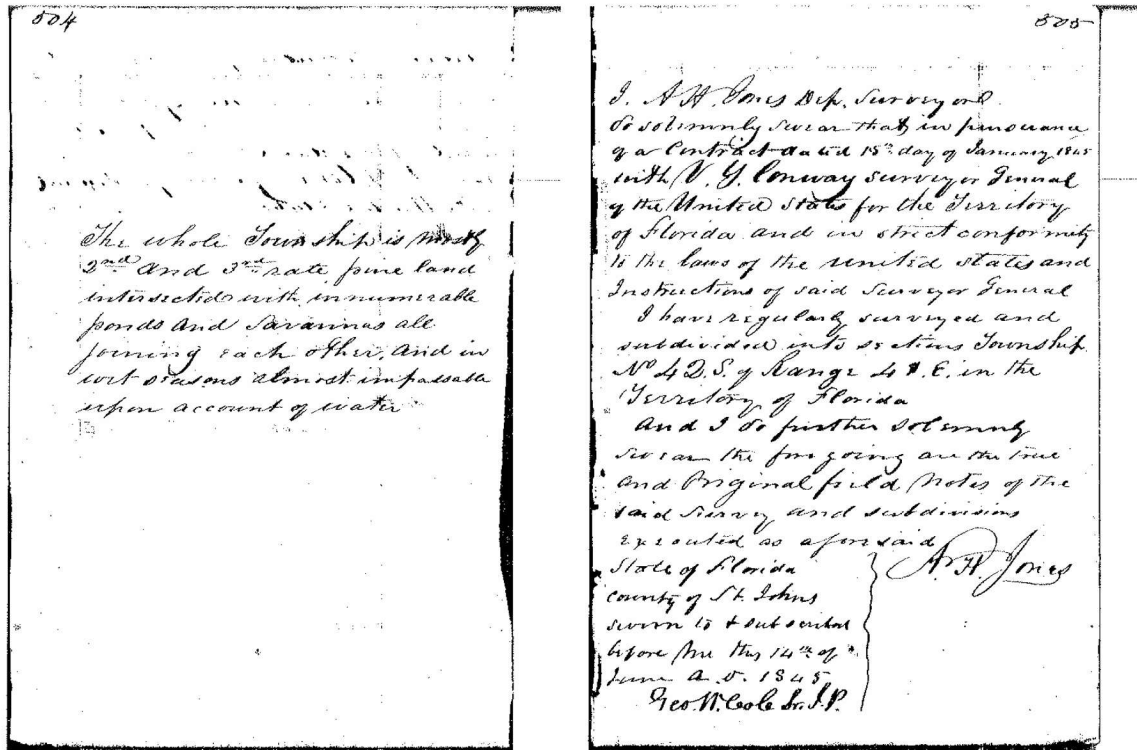 504
The whole Township is mostly
2nd and 3rd rate pine land
intersected with innumerable
ponds and Savannas all
joining each other, and in
wet seasons almost impassable
upon account of water
505
I. A H. Jones Dep. Surveyor
do solemnly swear that in pursuance
of a Contract dated 15th day of January 1845
with V. Y. Conway surveyor General
of the United States for the Territory
of Florida and in strict conformity
to the laws of the united states and
Instructions of said Surveyor General
I have regularly surveyed and
subdivided into sections Township
No 42. S. of Range 41. E. in the
Territory of Florida
And I do further solemnly
swear the forgoing are the true
and Original field Notes of the
said Survey and subdivisions
executed as aforesaid
A. H. Jones
State of Florida
county of St. Johns
sworn to & subscribed
before me this 14th of
June A.D. 1845
Geo. W. Cole Sr. J.P.